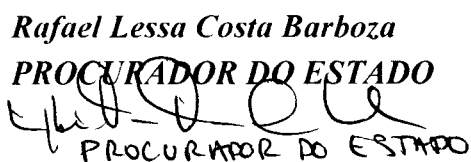 Rafael Lessa Costa Barboza
PROCURADOR DO ESTADO
PROCURADOR DO ESTADO